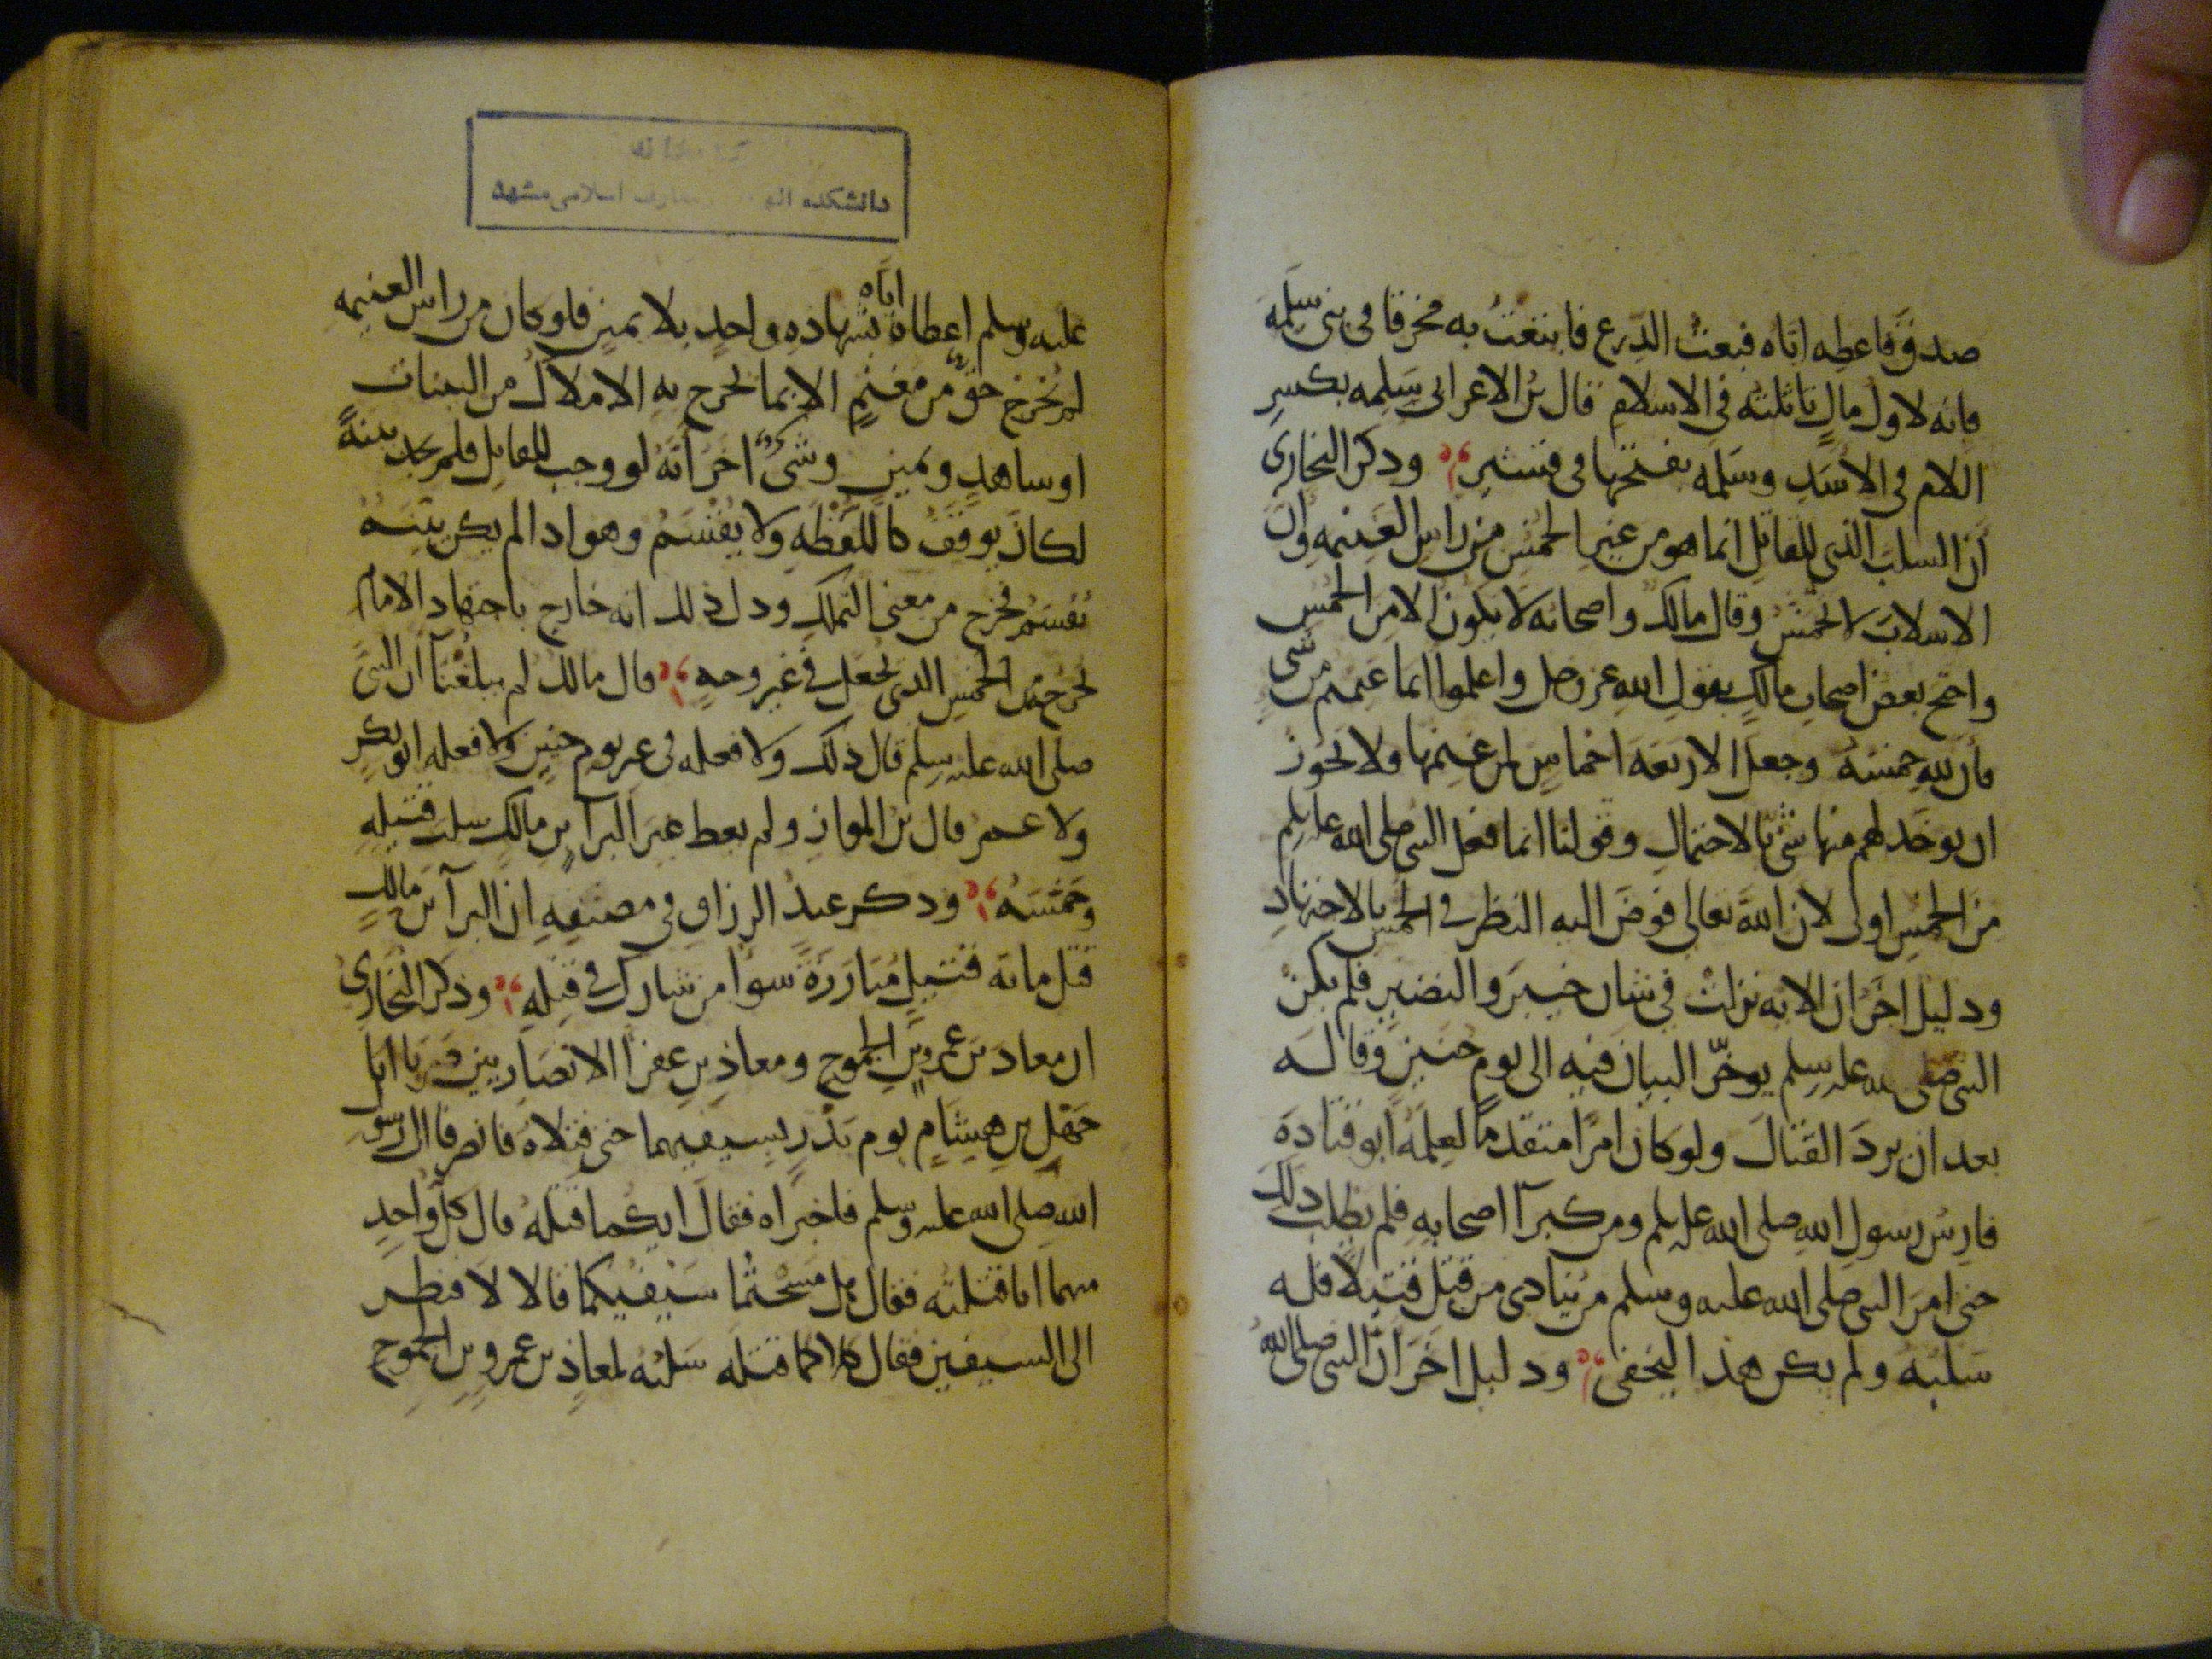 صدق فاعطه اياه فبعث الدرع فابتعت به مخرفا في بني سلمه
فانه لاول مال تاثلته في الاسلام قال بن الاعرابي سلمه بكسر
اللام في الاسد وسلمه بفتحها في قشير وذكر البخاري
ان السلب الذي للقاتل انما هو من غير الخمس من راس الغنيمه وان
الاسلاب لا تخمس وقال مالك واصحابه لا يكون الا من الخمس
واحتج بعض اصحاب مالك بقول الله عز وجل واعلموا انما غنمتم من شي
فان لله خمسه وجعل الاربعه اخماس لمن غنمها ولا يجوز
ان يوخذ لهم منها شي بالاحتمال وقولنا انما فعل النبي صلى الله عليه وسلم
من الخمس اولى لان الله تعالى فوض اليه النظر في الخمس بالاجتهاد
ودليل اخر ان الايه نزلت في شان خيبر والنضير فلم يكن
النبي صلى الله عليه وسلم يوخر البيان فيه الى يوم حنين وقاله
بعد ان برد القتال ولو كان امرا متقدما لعلمه ابو قتاده
فارس رسول الله صلى الله عليه وسلم ومن كبرآ اصحابه فلم يطلب ذلك
حتى امر النبي صلى الله عليه وسلم من ينادي من قتل قتيلا فله
سلبه ولم يكن هذا ليخفى ودليل اخر ان النبي صلى الله
دانشكده اسلامى مشهد
عليه وسلم اعطاه اياه بشهاده واحد بلا يمين فلو كان من راس الغنيمه
لم يخرج حق من مغنم الا بما تخرج به الاملاك من البينات
او شاهد ويمين وشي اخر انه لو وجب للقاتل فلم يجد بينة
لكان يوقف كاللقطه ولا يقسم وهو اذا لم يكن بينه
يقسم فخرج من معنى التملك ودل ذلك انه خارج باجتهاد الامام
يخرج من الخمس الذي يجعل في غير وجه قال مالك لم يبلغنا ان النبي
صلى الله عليه وسلم قال ذلك ولا فعله في غير يوم حنين ولا فعله ابو بكر
ولا عمر قال بن المواز ولم يعط غير البرآ بن مالك سلب قتيله
وخمسه وذكر عبد الرزاق في مصنفه ان البرآ بن مالك
قتل مائه قتيل مبارزة سوا من شارك في قتله وذكر البخاري
ان معاذ بن عمرو بن الجموح ومعاذ بن عفرا الانصاريين ضربا ابا
جهل بن هشام يوم بدر بسيفيهما حتى قتلاه فانصرفا الى رسول
الله صلى الله عليه وسلم فاخبراه فقال ايكما قتله قال كل واحد
منهما انا قتلته فقال هل مسحتما سيفيكما قالا لا فنظر
الى السيفين فقال كلاكما قتله سلبه لمعاذ بن عمرو بن الجموح